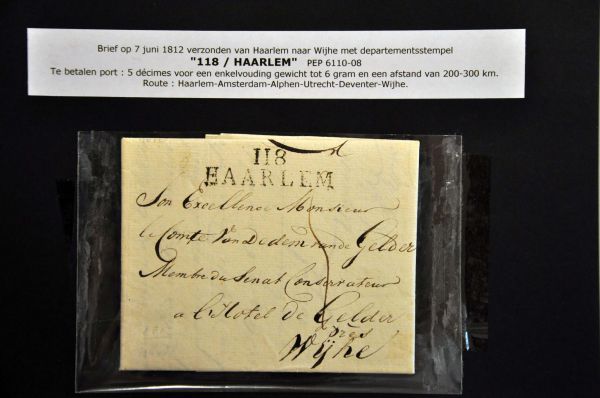 Brief op 7 juni 1812 verzonden van Haarlem naar Wijhe met departementsstempel
"118 / HAARLEM" PEP 6110-08
Te betalen port : 5 décimes voor een enkelvouding gewicht tot 6 gram en een afstand van 200-300 km.
Route : Haarlem-Amsterdam-Alphen-Utrecht-Deventer-Wijhe.
118
HAARLEM
Son Excellence Monsieur
le Comte Van Dedem van de Gelder
Membre du Senat Conservateur
a l'Hotel de Gelder
près
Wijhe
5